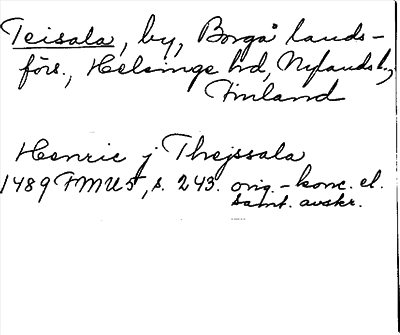 Teisala, by, Borgå lands-
förs., Helsinge hd, Nylands l.,
Finland
Henric j Thejssala
1489 FMU5, s. 243. orig.-konc. el.
samt. avskr.